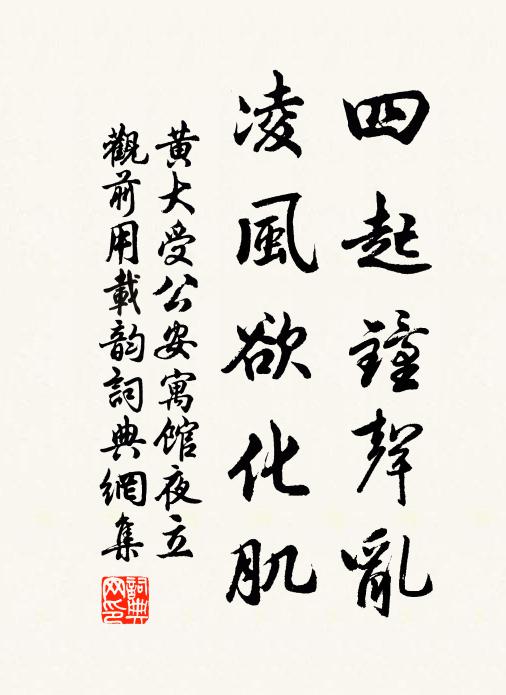 四起鐘聲亂
凌風欲化肌
黃大受公安寓館夜立
觀前用載韵詞典網集
詞典網印